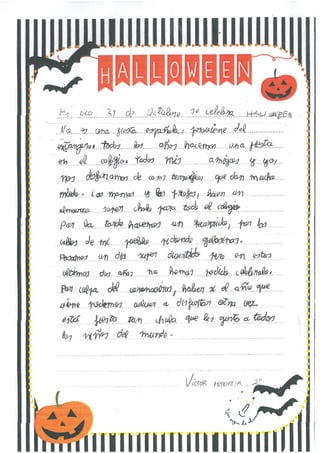 HALLOWEEN
El día 31 de Octubre se celebra HALLOWEEN
No es una fiesta española, proviene del
extranjero. todos los años hacemos una fiesta
en el colegio todos mis amigos y yo
nos disfrazamos de cosas terroríficas que dan mucho
miedo. Las mamas y los profes, hacen un
almuerzo super chulo para todo el colegio
Por la tarde hacemos un recorrido, por las
calles de mi pueblo pidiendo golosinas.
Pasamos un día super divertido pero en estos
ultimos dos años no hemos podido celebrarlo.
Por culpa del coronavirus, haber si el año que
viene podemos volver a disfrutar otra vez
esta fiesta tan chula que les gusta a todos
los niños del mundo.
VICTOR